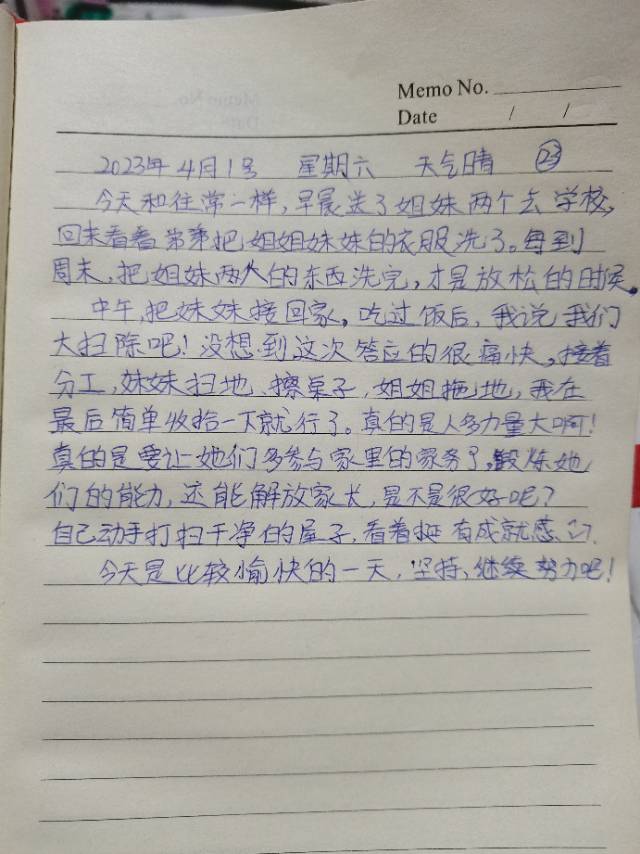 Memo No.
Date / /
2023年4月1号 星期六 天气晴 23
今天和往常一样，早晨送了姐妹两个去学校，
回来看着弟弟把姐姐妹妹的衣服洗了。每到
周末，把姐妹两人的东西洗完，才是放松的时候。
中午，把妹妹接回家，吃过饭后，我说我们
大扫除吧！没想到这次答应的很痛快，接着
分工，妹妹扫地、擦桌子，姐姐拖地，我在
最后简单收拾一下就行了。真的是人多力量大啊！
真的是要让她们多参与家里的家务了，锻炼她
们的能力，还能解放家长，是不是很好呢？
自己动手打扫干净的屋子，看着挺有成就感
今天是比较愉快的一天，坚持、继续努力吧！